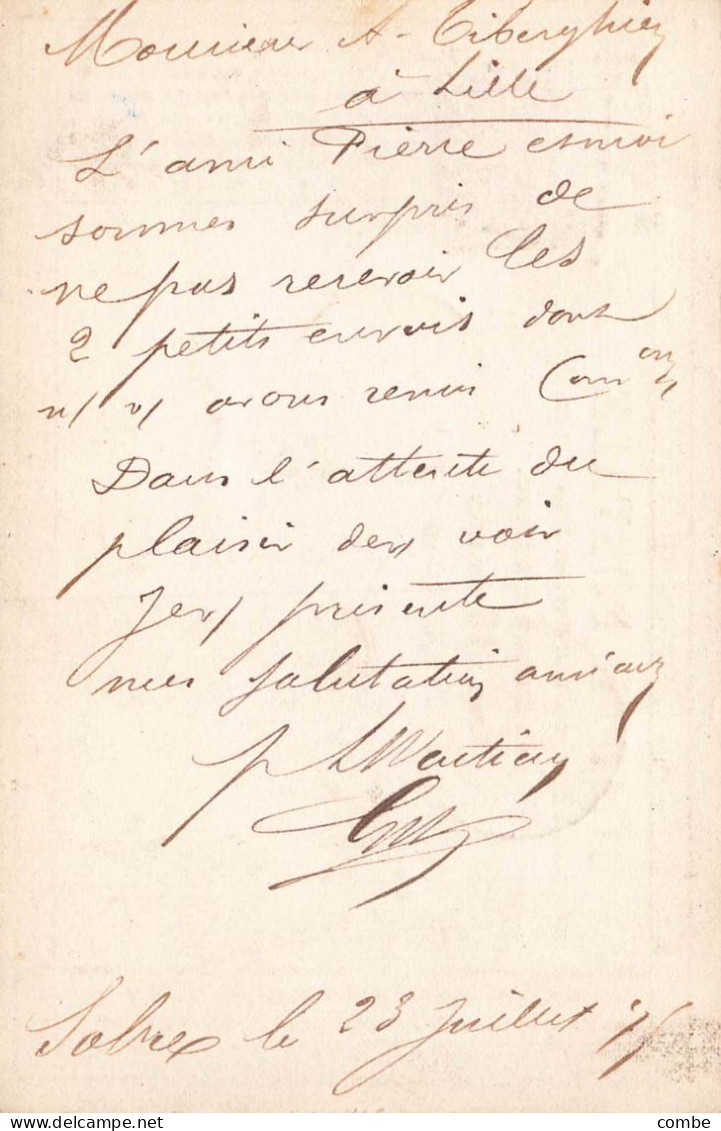 Monsieur A. Tiberghien
à Lille
L'ami Pierre et moi
sommes surpris de
ne pas recevoir les
2 petits envois dont
n/ v/ avons remis Com^on
Dans l'attente du
plaisir de v/ voir
Je v/ présente
mes salutations amicales
p
Solre le 23 Juillet
combe